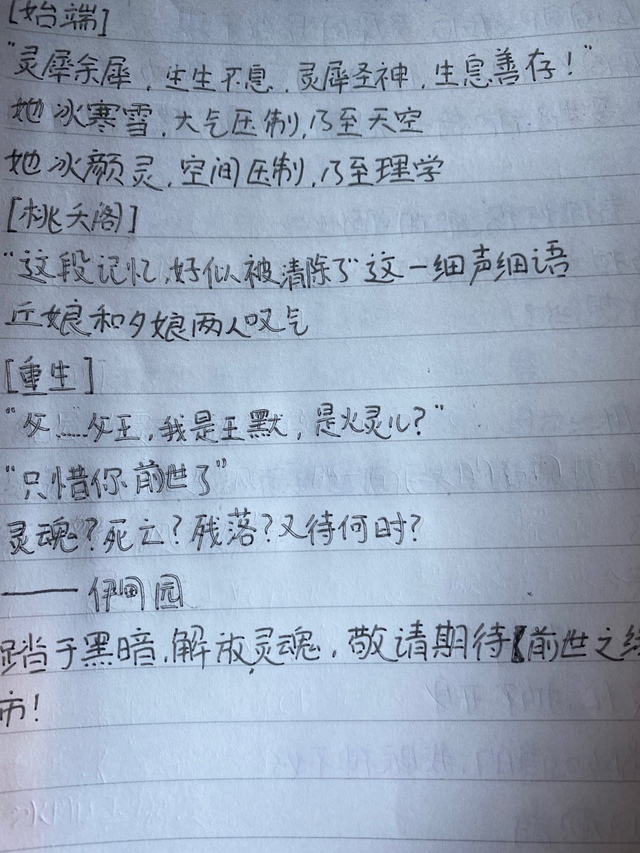 [始端]
"灵犀余犀，生生不息，灵犀圣神，生息善存！"
她冰寒雪，大气压制，乃至天空
她冰颜灵，空间压制，乃至理学
[桃夭阁]
"这段记忆，好似被清除了"这一细声细语
丘娘和夕娘两人叹气
[重生]
"父……父王，我是王默，是火灵儿？"
"只惜你前世了"
灵魂？死亡？残落？又待何时？
——伊甸园
踏于黑暗，解放灵魂，敬请期待【前世之终
市！